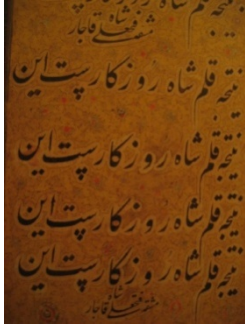 نتیجه قلم شاه روزکارست این
مشقه فتحعلی شاه قاجار
نتیجه قلم شاه روزکارست این
نتیجه قلم شاه روزکارست این
نتیجه قلم شاه روزکارست این
نتیجه قلم شاه روزکارست این
مشقه فتحعلی شاه قاجار